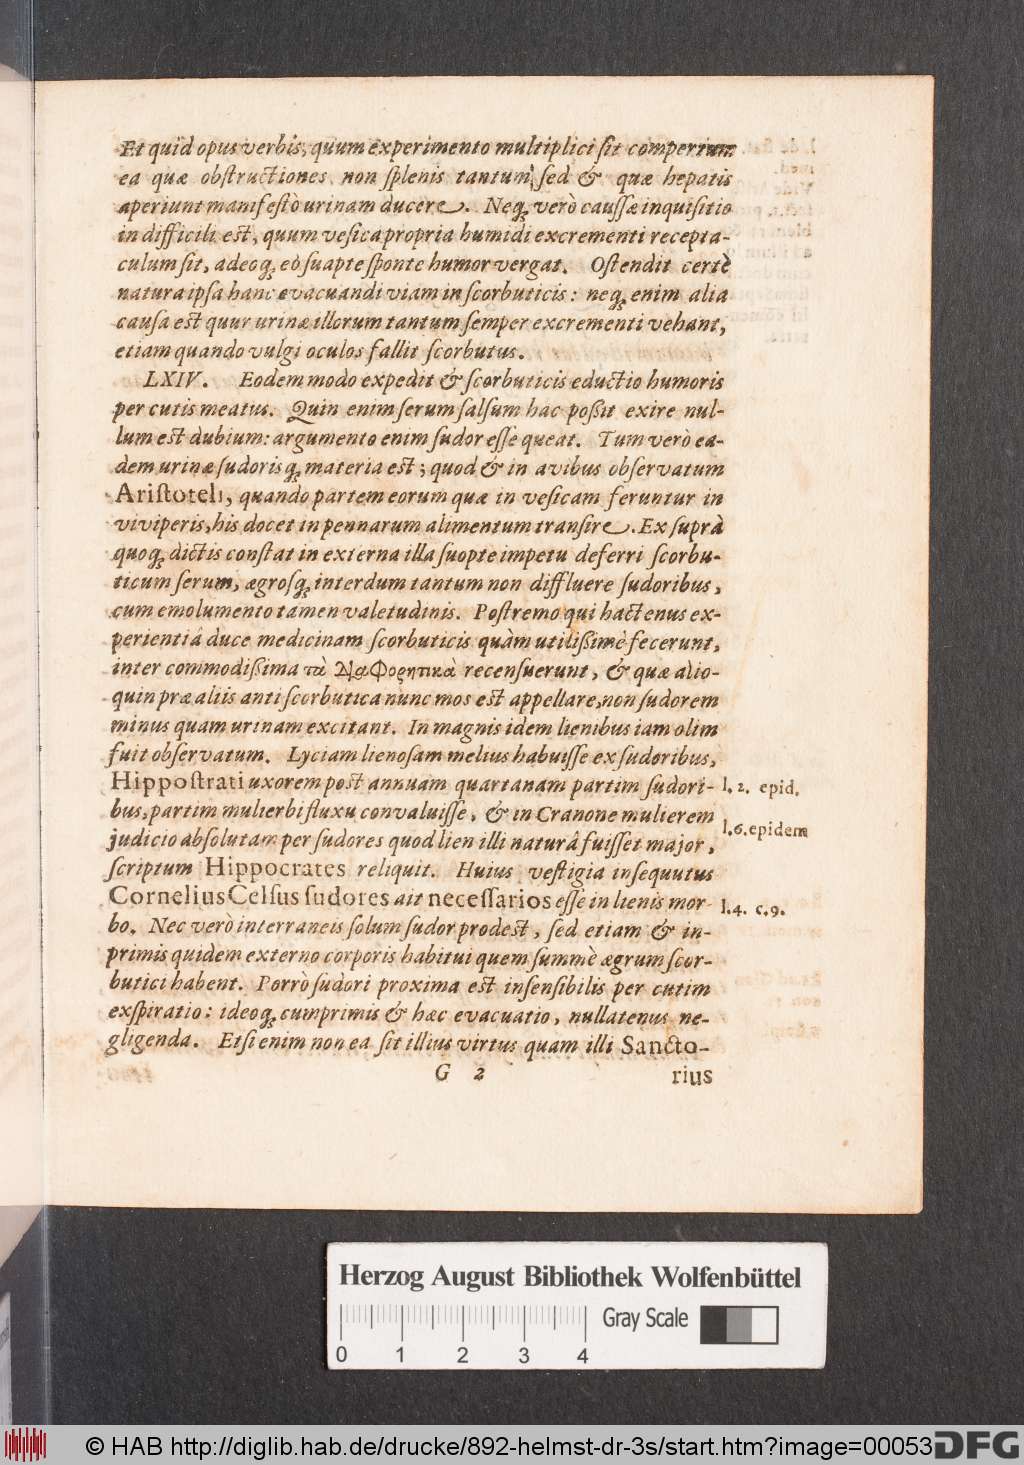 Et quid opus verbis, quum experimento multiplici sit compertum
ea quæ obstructiones non splenis tantum, sed & quæ hepatis
aperiunt manifestò urinam ducere. Neq; verò caussæ inquisitio
in difficili est, quum vesica propria humidi excrementi recepta-
culum sit, adeoq; eò suapte sponte humor vergat. Ostendit certè
natura ipsa hanc evacuandi viam in scorbuticis: neq; enim alia
causa est quur urinæ illorum tantum semper excrementi vehant,
etiam quando vulgi oculos fallit scorbutus.
LXIV. Eodem modo expedit & scorbuticis eductio humoris
per cutis meatus. Quin enim serum salsum hac possit exire nul-
lum est dubium: argumento enim sudor esse queat. Tum verò ea-
dem urinæ sudorisq; materia est; quod & in avibus observatum
Aristoteli, quando partem eorum quæ in vesicam feruntur in
viviperis, his docet in pennarum alimentum transire. Ex suprà
quoq; dictis constat in externa illa suopte impetu deferri scorbu-
ticum serum, ægrosq; interdum tantum non diffluere sudoribus,
cum emolumento tamen valetudinis. Postremo qui hactenus ex-
perientiâ duce medicinam scorbuticis quàm utilissimè fecerunt,
inter commodissima τὰ διαφορητικὰ recensuerunt, & quæ alio-
quin præ aliis antiscorbutica nunc mos est appellare, non sudorem
minus quam urinam excitant. In magnis idem lienibus iam olim
fuit observatum. Lyciam lienosam melius habuisse ex sudoribus,
Hippostrati uxorem post annuam quartanam partim sudori-
bus, partim muliebri fluxu convaluisse, & in Cranone mulierem
judicio absolutam per sudores quod lien illi naturâ fuisset major,
scriptum Hippocrates reliquit. Huius vestigia insequutus
Cornelius Celsus sudores ait necessarios esse in lienis mor-
bo. Nec verò interraneis solum sudor prodest, sed etiam & in-
primis quidem externo corporis habitui quem summè ægrum scor-
butici habent. Porrò sudori proxima est insensibilis per cutim
exspiratio: ideoq; cumprimis & hæc evacuatio, nullatenus ne-
gligenda. Etsi enim non ea sit illius virtus quam illi Sancto-
G 2 rius
l. 2. epid.
l.6.epidem
l.4. c.9.
Herzog August Bibliothek Wolfenbüttel
Gray Scale
0 1 2 3 4
© HAB http://diglib.hab.de/drucke/892-helmst-dr-3s/start.htm?image=00053
DFG